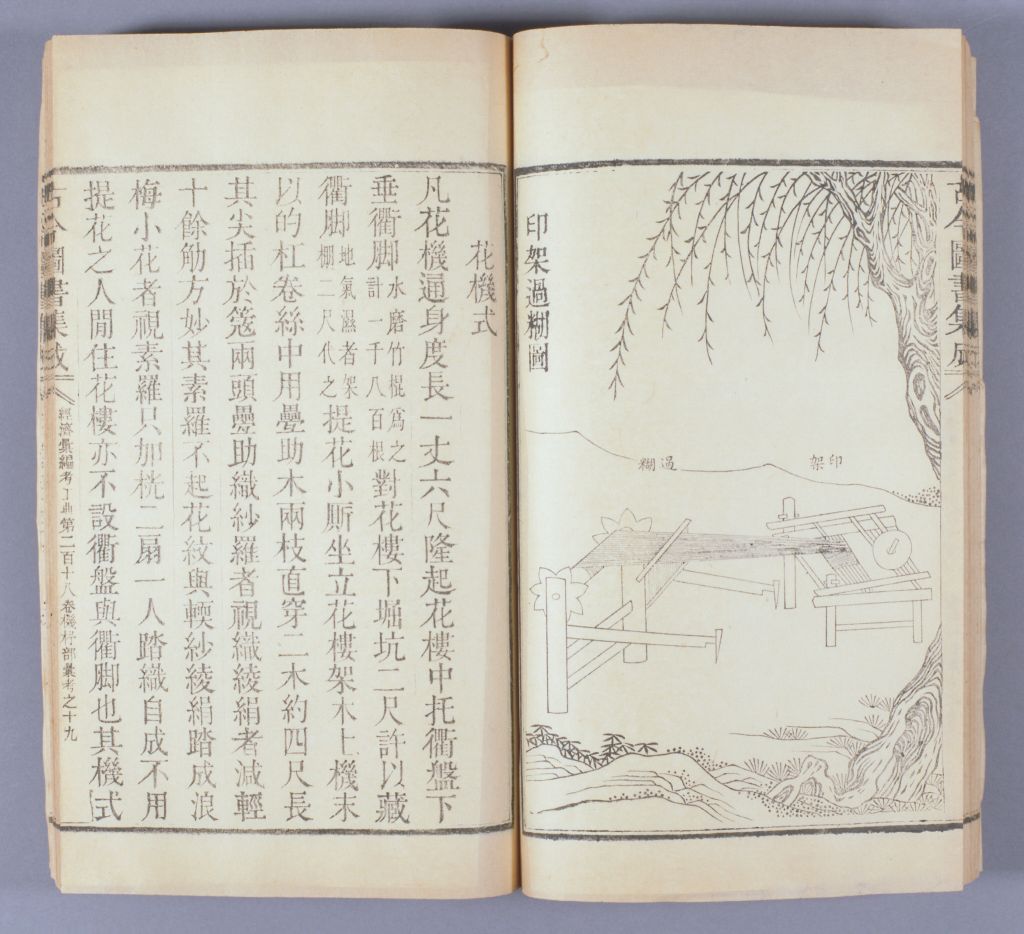 古今圖書集成
印架
過糊
印架過糊圖
花機式
凡花機通身度長一丈六尺隆起花樓中托衢盤下
垂衢脚水磨竹棍爲之計一千八百根對花樓下堀坑二尺許以藏
衢脚地氣濕者架棚二尺代之提花小厮坐立花樓架木上機末
以的杠卷絲中用疊助木兩枝直穿二木約四尺長
其尖插於筬兩頭疊助織紗羅者視織綾絹者減輕
十餘觔方妙其素羅不起花紋與輭紗綾絹踏成浪
梅小花者視素羅只加桄二扇一人踏織自成不用
提花之人閒住花樓亦不設衢盤與衢脚也其機式
古今圖書集成
經濟彙編考工典第二百十八卷機杼部彙考之十九